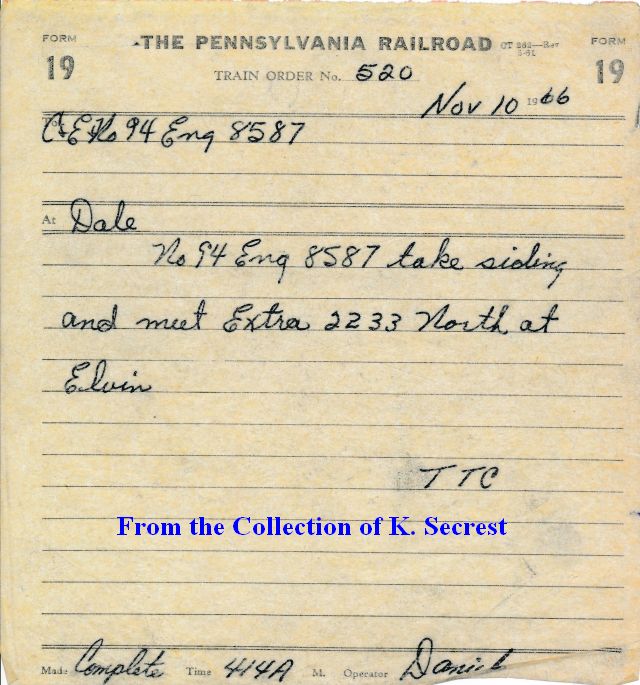 FORM 19
THE PENNSYLVANIA RAILROAD
CT 262—Rev 5-61
FORM 19
TRAIN ORDER No. 520
Nov 10 1966
To C&E No 94 Eng 8587
At Dale
No 94 Eng 8587 take siding
and meet Extra 2233 North at
Elvin
TTC
From the Collection of K. Secrest
Made Complete Time 414A M. Operator Daniel